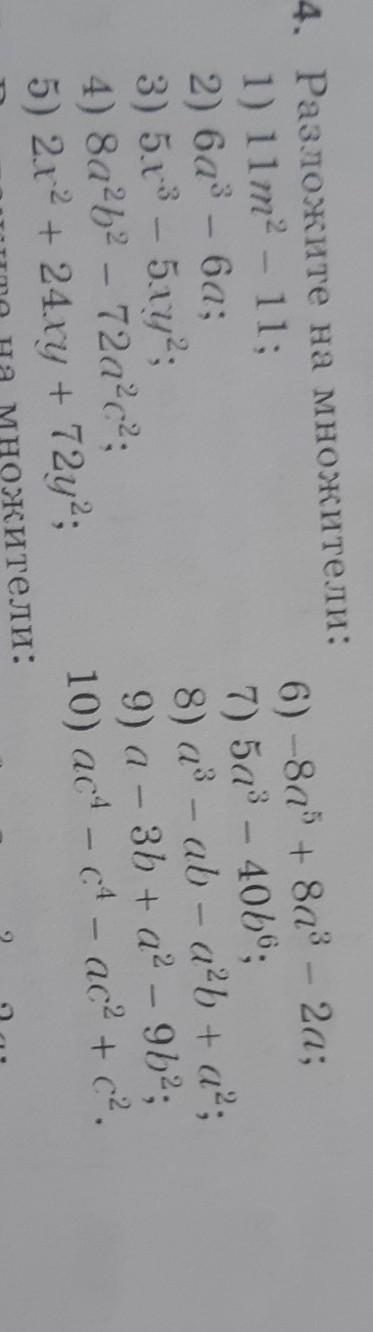 4. Разложите на множители:
1) 11m² – 11;
2) 6a³ – 6a;
3) 5x³ – 5xy²;
4) 8a²b² – 72a²c²;
5) 2x² + 24xy + 72y²;
6) –8a⁵ + 8a³ – 2a;
7) 5a³ – 40b⁶;
8) a³ – ab – a²b + a²;
9) a – 3b + a² – 9b²;
10) ac⁴ – c⁴ – ac² + c².
на множители: